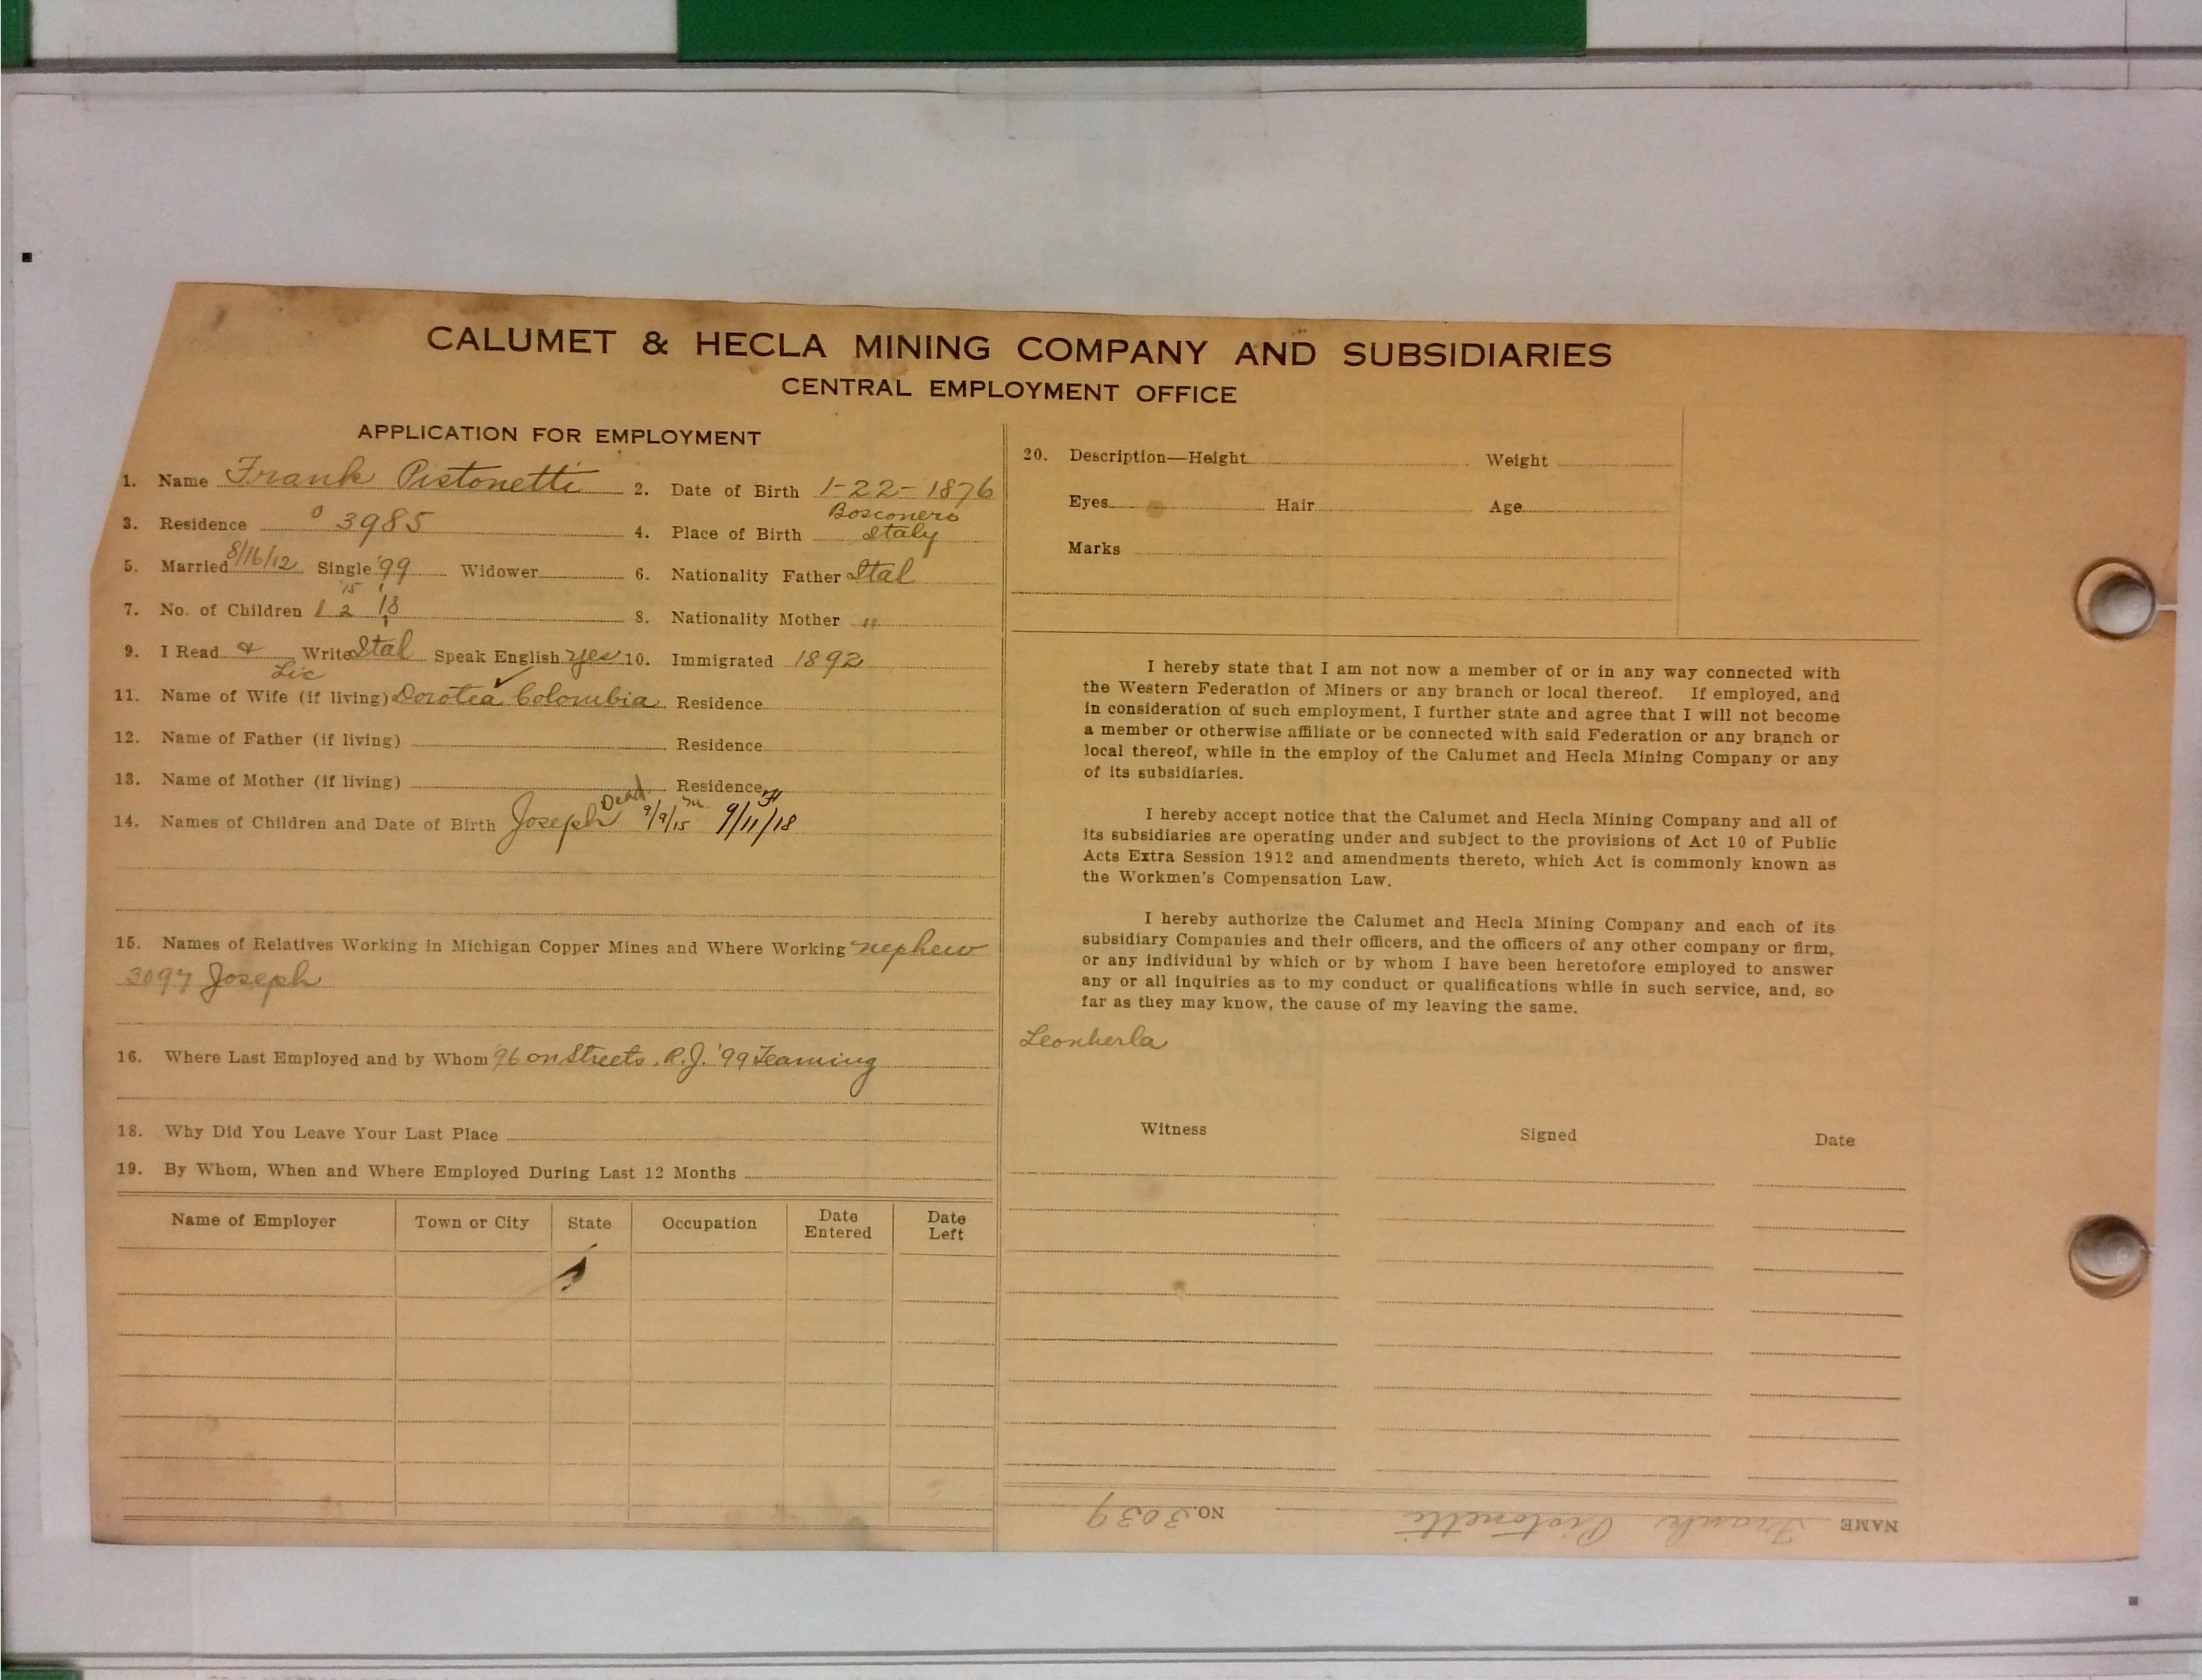 CALUMET & HECLA MINING COMPANY AND SUBSIDIARIES
CENTRAL EMPLOYMENT OFFICE
APPLICATION FOR EMPLOYMENT
1. Name Frank Pistonetti 2. Date of Birth 1-22-1876
3. Residence 3985 4. Place of Birth Bosconero Italy
5. Married 8/16/12 Single '99 Widower 6. Nationality Father Ital
7. No. of Children 1 2 '15 '18 8. Nationality Mother "
9. I Read & Write Ital Speak English yes 10. Immigrated 1892
11. Name of Wife (if living) Dorotea Colombia Residence
12. Name of Father (if living) Residence
13. Name of Mother (if living) Residence
14. Names of Children and Date of Birth Joseph Dead 9/9/15 m. 9/11/18 F
15. Names of Relatives Working in Michigan Copper Mines and Where Working nephew
3097 Joseph
16. Where Last Employed and by Whom '96 on Streets, R.J. '99 Teaming
18. Why Did You Leave Your Last Place
19. By Whom, When and Where Employed During Last 12 Months
Name of Employer Town or City State Occupation Date Entered Date Left
20. Description—Height Weight
Eyes Hair Age
Marks
I hereby state that I am not now a member of or in any way connected with
the Western Federation of Miners or any branch or local thereof. If employed, and
in consideration of such employment, I further state and agree that I will not become
a member or otherwise affiliate or be connected with said Federation or any branch or
local thereof, while in the employ of the Calumet and Hecla Mining Company or any
of its subsidiaries.
I hereby accept notice that the Calumet and Hecla Mining Company and all of
its subsidiaries are operating under and subject to the provisions of Act 10 of Public
Acts Extra Session 1912 and amendments thereto, which Act is commonly known as
the Workmen's Compensation Law.
I hereby authorize the Calumet and Hecla Mining Company and each of its
subsidiary Companies and their officers, and the officers of any other company or firm,
or any individual by which or by whom I have been heretofore employed to answer
any or all inquiries as to my conduct or qualifications while in such service, and, so
far as they may know, the cause of my leaving the same.
Witness Signed Date
NAME Frank Pistonetti NO. 3039